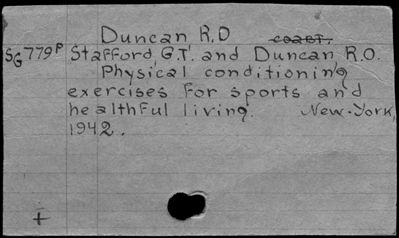 Duncan R.D coart.
SG779P Stafford, G.T. and Duncan, R.O.
Physical conditioning
exercises for sports and
healthful living. New-York,
1942.
+